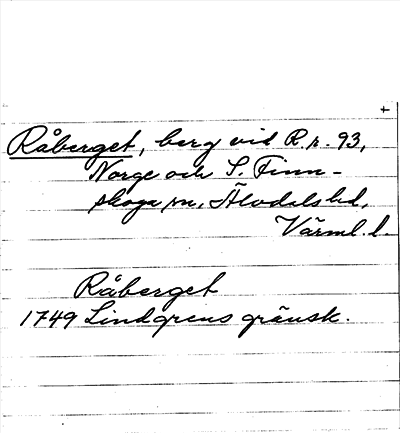 Råberget, berg vid R.r. 93,
Norge och S. Finn-
skoga sn, Älvdals hd,
Värml. l.
Råberget
1749 Lindgrens gränsk.